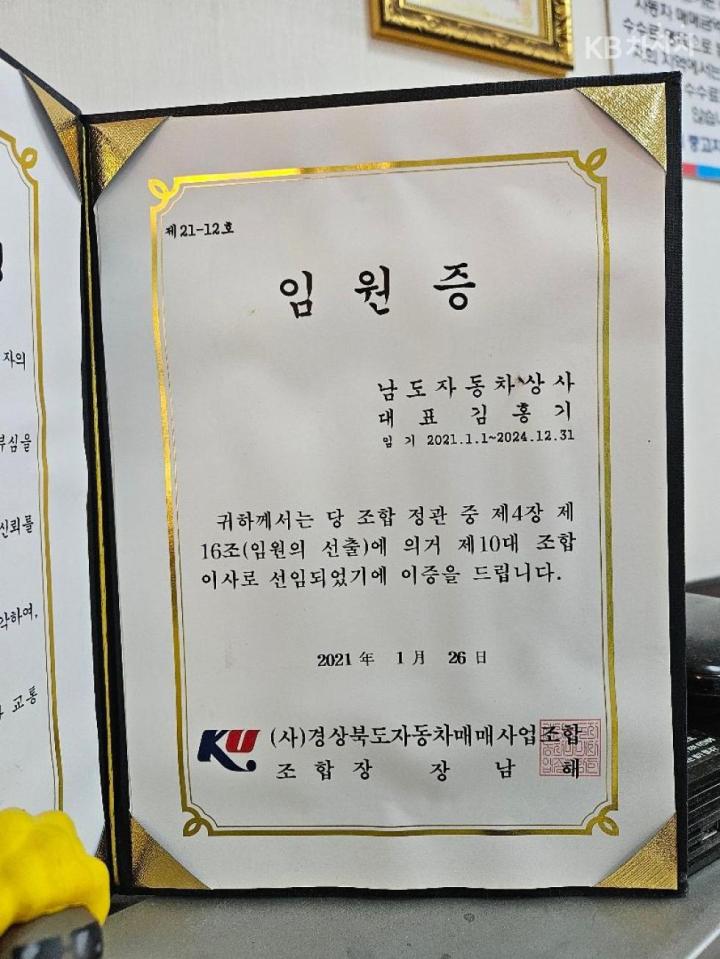 KB차차차
제21-12호
임원증
남도자동차상사
대표 김홍기
임기 2021.1.1~2024.12.31
귀하께서는 당 조합 정관 중 제4장 제
16조(임원의 선출)에 의거 제10대 조합
이사로 선임되었기에 이증을 드립니다.
2021 年 1 月 26 日
KU (사)경상북도자동차매매사업조합
조합장 장남해
자의
부심을
신뢰를
교통
자동차 매매금액
수수료
수수료
않습
중고차